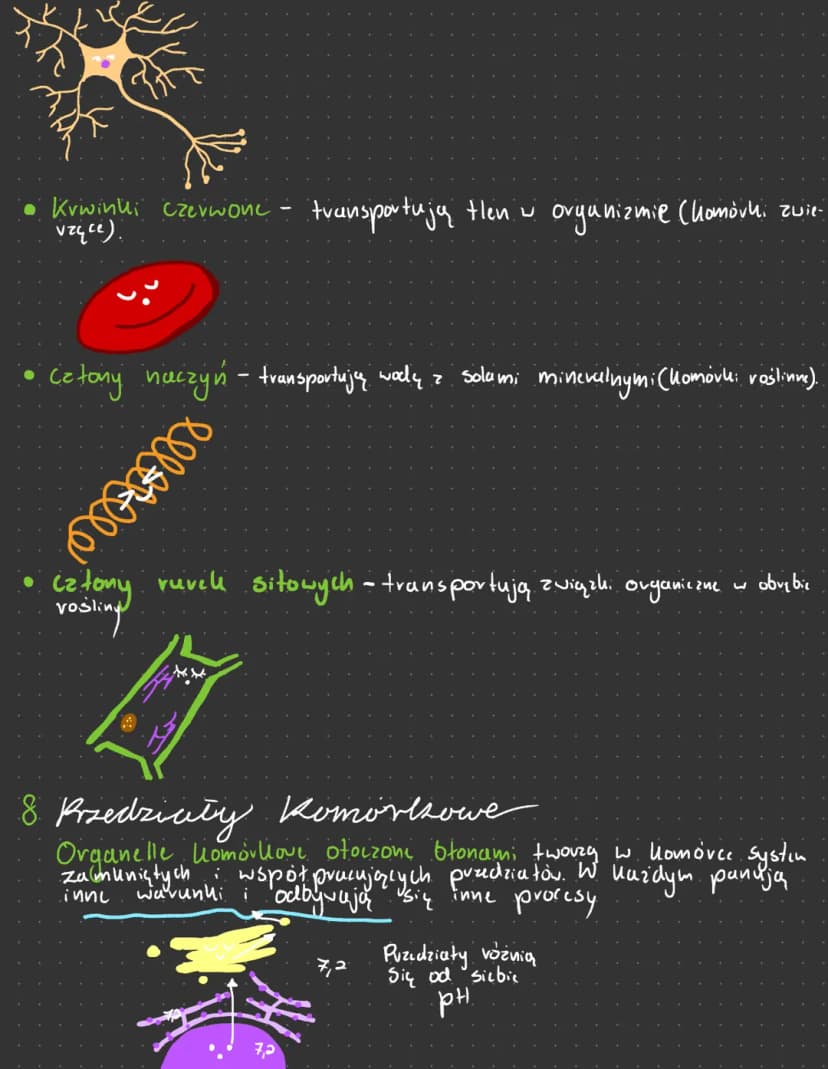 • Krwinki czerwone - transportują tlen w organizmie (komórki zwie-
rzęce).
• Człony naczyń - transportują wodę z solami mineralnymi (komórki roślinne).
• Człony rurek sitowych - transportują związki organiczne w obrębie
rośliny
8 Przedziały komórkowe
Organelle komórkowe otoczone błonami tworzą w komórce system
zamkniętych i współpracujących przedziałów. W każdym panują
inne warunki i odbywają się inne procesy
7,2
Przedziały różnią
się od siebie
pH
7,2